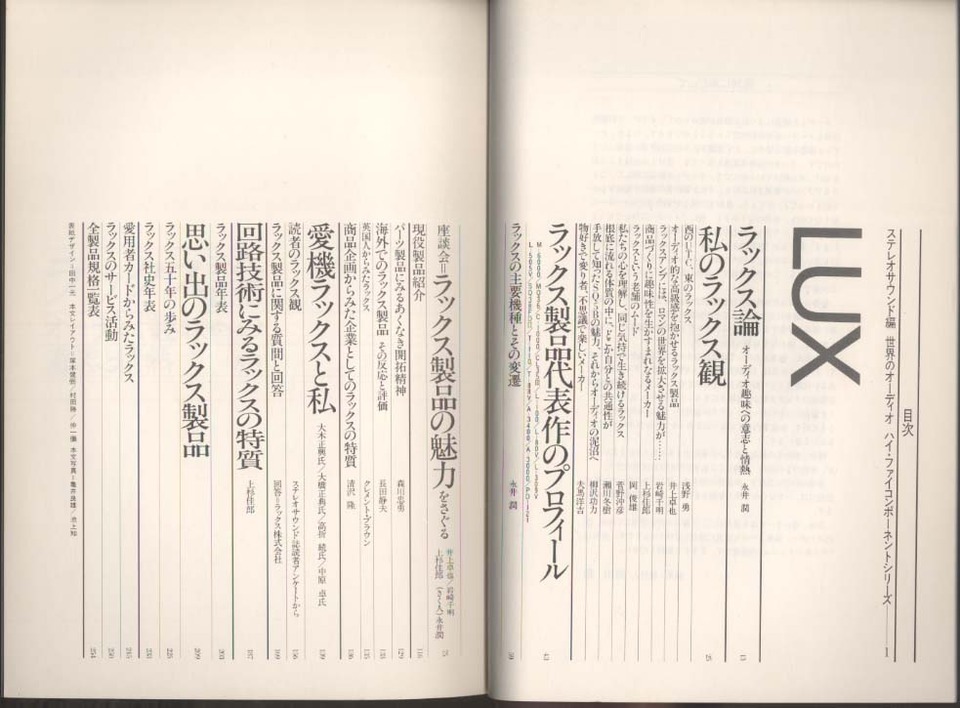 ステレオサウンド編 世界のオーディオ ハイ・ファイコンポーネントシリーズ——1
目次
LUX
ラックス論 オーディオ趣味への意志と情熱 永井 潤 13
私のラックス観 25
西のQUAD、東のラックス 浅野 勇
オーディオ的な高級感を抱かせるラックス製品 井上卓也
ラックスアンプには、ロマンの世界を拡大させる魅力が…… 岩崎千明
商品づくりに趣味性を生かすまれなるメーカー 上杉佳郎
ラックスという老舗のムード 岡 俊雄
私たちの心を理解し、同じ気持で生き続けるラックス 菅野沖彦
根底に流れる体質の中に、どこか自分との共通性が 瀬川冬樹
手放して知ったSQ38の魅力、それからオーディオの泥沼へ 柳沢功力
物好きで変り者、不思議で楽しいメーカー 大馬洋吉
ラックス製品代表作のプロフィール 43
永井 潤
ラックスの主要機種とその変遷 59
座談会=ラックス製品の魅力をさぐる 井上卓也/岩崎千明 上杉佳郎 〔きく人〕永井潤 75
現役製品紹介 116
パーツ製品にみるあくなき開拓精神 森川忠勇 129
海外でのラックス製品 その反応と評価 長田静夫 131
英国人からみたラックス クレメント・ブラウン 135
商品企画からみた企業としてのラックスの特質 清沢 隆 136
愛機ラックスと私 大木正興氏/大橋正典氏/高折 続氏/中原 卓氏 139
読者のラックス観 ステレオサウンド誌読者アンケートから 156
ラックス製品に関する質問と回答 回答=ラックス株式会社 169
回路技術にみるラックスの特質 上杉佳郎 197
ラックス製品年表
思い出のラックス製品 209
ラックス五十年の歩み 225
ラックス社史年表
愛用者カードからみたラックス 245
ラックスのサービス活動 250
全製品規格一覧表 254
表紙デザイン=田中一光 本文レイアウト=塚本健弼/村田 勝/仲一彌 本文写真=亀井良雄/池上知